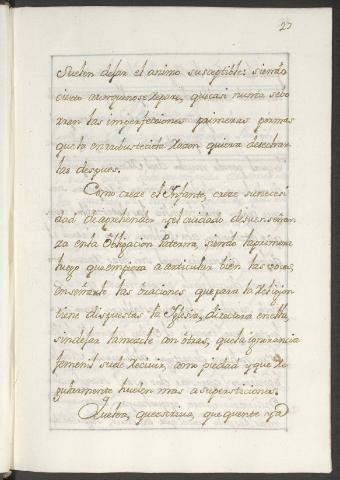 27
suelen dejar el animo susceptible: siendo
cierto aunque no se repare, que casi nunca se bo
rran las imperfecciones primeras, por mas
que la
las despues.
Como crece el Infante, crece su neces
sidad de aprehender, y el cuidado de su enseñan
za en la obligacion Paterna, siendo la primera
luego que empieza a articular bien las voces,
enseñarle las oraciones que para la Religion
tiene dispuestas la Iglesia, directora en ella,
sin dejar la mezcle con otras, que la ignorancia
femenil suele recivir, como piedad y que re
gularmente huelen mas a supersticiones.
Quieto, que escriva, que quente ya